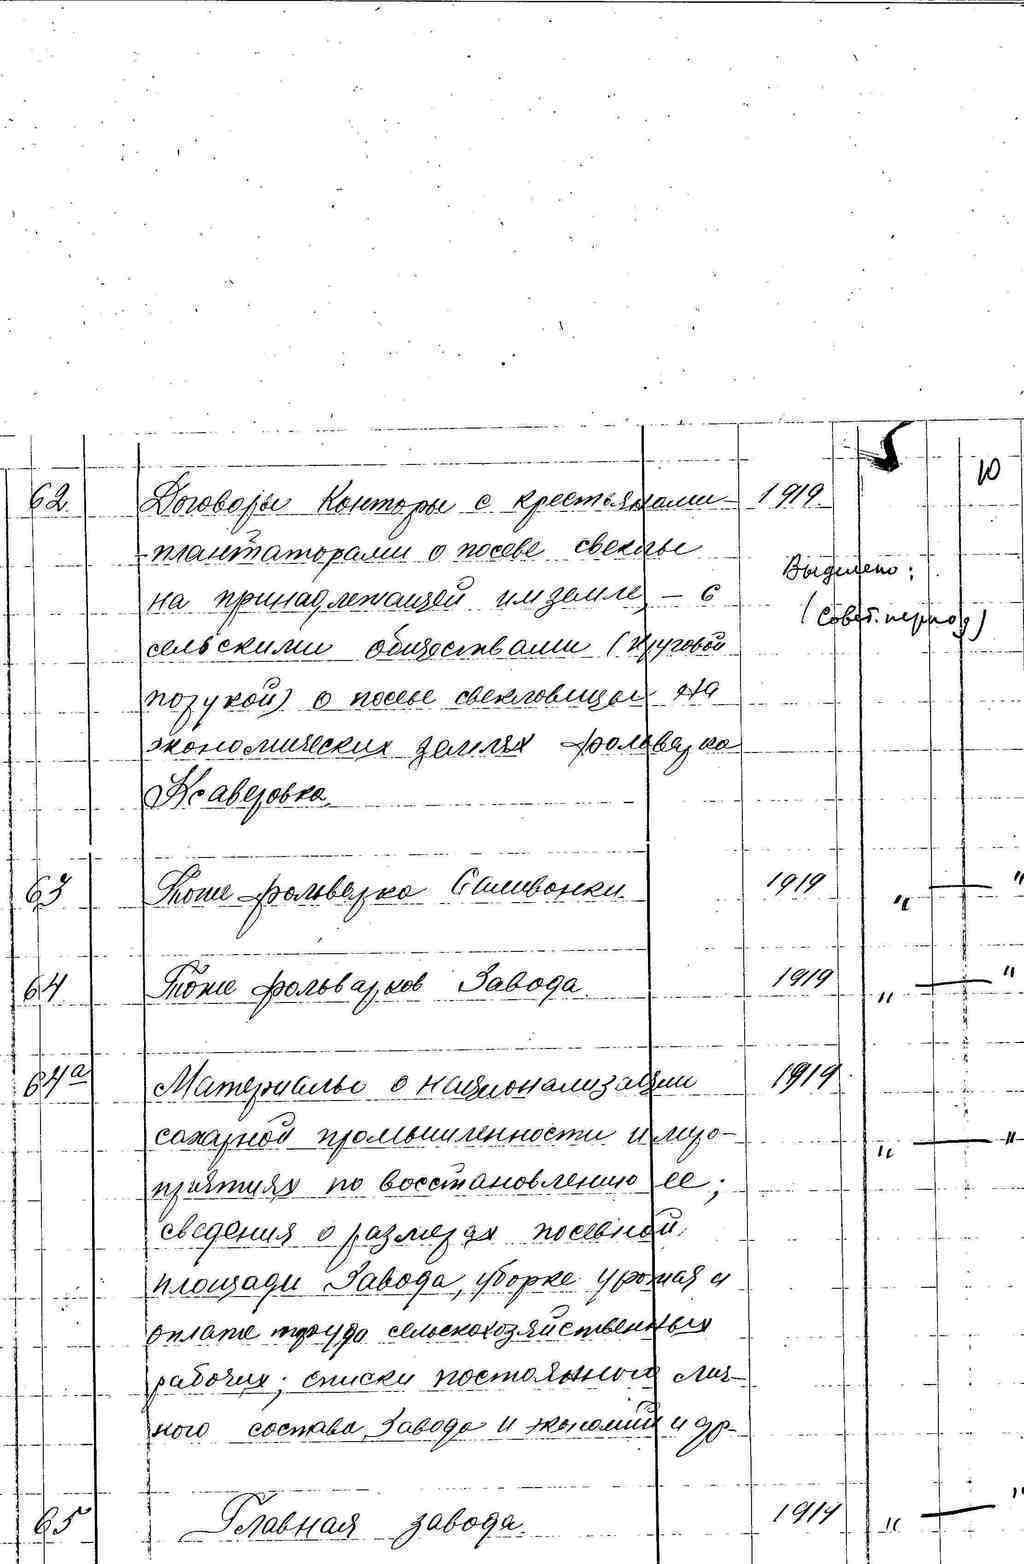 10
62 Договоры Конторы с крестьянами- 1919
-плантаторами о посеве свеклы
Выделено:
на принадлежащей им земле, - с
(Совет. период)
сельскими обществами (круговой
порукой) о посеве свекловицы на
экономических землях фольварка
Ксаверовка.
63 Тоже фольварка Саливонки. 1919 " — "
64 Тоже фольварков Завода. 1919 " — "
64а Материалы о национализации 1919.
сахарной промышленности и меро- " — "
приятиях по восстановлению ее;
сведения о размерах посевной
площади Завода, уборке урожая и
оплате труда сельскохозяйственных
рабочих; списки постоянного лич-
ного состава Завода и экономий и др.
65 Главная завода. " — "